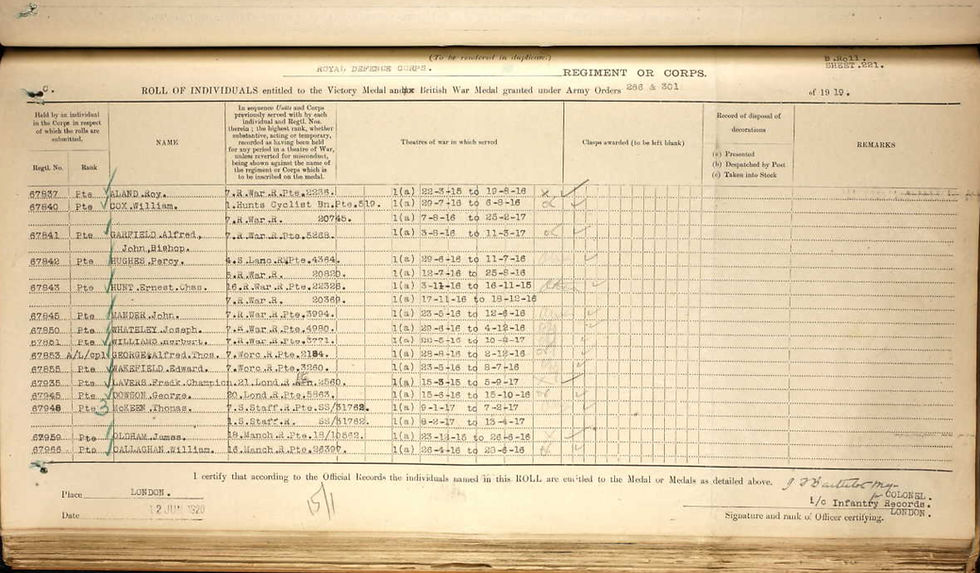 (To be rendered in duplicate.)
ROYAL DEFENCE CORPS. REGIMENT OR CORPS.
B.Roll.
SHEET.221.
C.
ROLL OF INDIVIDUALS entitled to the Victory Medal and British War Medal granted under Army Orders 266 & 301 of 19 19.
Held by an individual in the Corps in respect of which the rolls are submitted.
Regtl. No. Rank
NAME
In sequence Units and Corps previously served with by each individual and Regtl. Nos. therein; the highest rank, whether substantive, acting or temporary, recorded as having been held for any period in a theatre of War, unless reverted for misconduct, being shown against the name of the regiment or Corps which is to be inscribed on the medal.
Theatres of war in which served
Clasps awarded (to be left blank)
Record of disposal of decorations
(a) Presented
(b) Despatched by Post
(c) Taken into Stock
REMARKS
67837 Pte ALAND.Roy. 7.R.War.R.Pte.2236. 1(a) 22-3-15 to 19-8-16
67840 Pte COX.William. 1.Hunts Cyclist Bn.Pte.519. 1(a) 29-7-16 to 6-8-16
7.R.War.R. 20745. 1(a) 7-8-16 to 25-2-17
67841 Pte GARFIELD.Alfred, 7.R.War.R.Pte.5268. 1(a) 3-8-16 to 11-3-17
John,Bishop.
67842 Pte HUGHES.Percy. 4.S.Lanc.R.Pte.4364. 1(a) 29-6-16 to 11-7-16
R.War.R. 20820. 1(a) 12-7-16 to 25-8-16
67843 Pte HUNT.Ernest.Chas. 16.R.War.R.Pte.22326. 1(a) 3-11-16 to 16-11-15
7.R.War.R. 20369. 1(a) 17-11-16 to 18-12-16
67845 Pte MANDER.John. 7.R.War.R.Pte.3994. 1(a) 23-5-16 to 12-6-16
67850 Pte WHATELEY.Joseph. 7.R.War.R.Pte.4980. 1(a) 29-6-16 to 4-12-16
67851 Pte WILLIAMS.Herbert. 7.R.War.R.Pte.3771. 1(a)
67853 A/L/cpl GEORGE.Alfred.Thos. 7.Worc.R.Pte.2184. 1(a) 28-8-16 to 2-12-16
67855 Pte WAKEFIELD.Edward. 7.Worc.R.Pte.3260. 1(a) 23-5-16 to 8-7-16
67935 Pte LAVERS.Fredk.Champion. 21.Lond.R. 2560. 1(a) 15-3-15 to 5-9-17
67945 Pte DOWSON.George. 20.Lond.R.Pte.5863. 1(a) 15-6-16 to 15-10-16
67948 Pte McKEEN.Thomas. 7.S.Staff.R.Pte.SS/31762. 1(a) 9-1-17 to 7-2-17
1.S.Staff.R. SS/31762. 1(a) 8-2-17 to 13-4-17
67959 Pte OLDHAM.James. 18.Manch.R.Pte.18/10562. 1(a) 23-12-15 to 26-6-16
67966 Pte CALLAGHAN.William. 16.Manch.R.Pte.26397. 1(a) 26-4-16 to 23-6-16
I certify that according to the Official Records the individuals named in this ROLL are entitled to the Medal or Medals as detailed above.
Place LONDON.
Date 12 JUN 1920
15/1
for COLONEL.
i/c Infantry Records.
LONDON.
Signature and rank of Officer certifying.